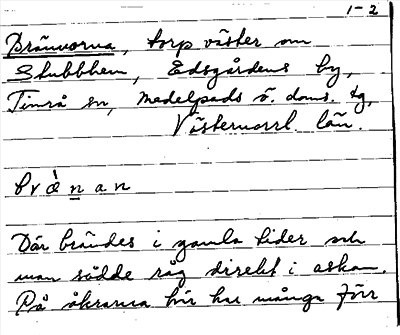 1-2
Brännorna, torp väster om
Stubbhem, Edsgårdens by,
Timrå sn, Medelpads ö. doms. tg,
Västernorrl. län.
brä̀nan
Där brändes i gamla tider och
man sådde råg direkt i askan.
På åkrarna här har många förr